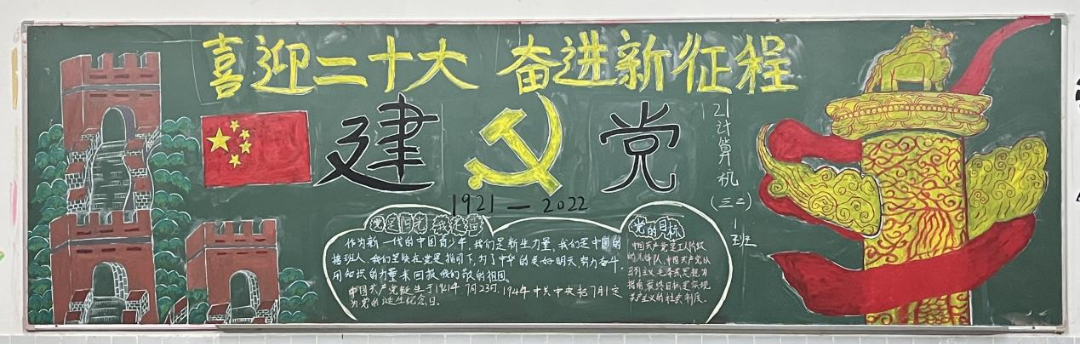 喜迎二十大 奋进新征程
建 党
1921—2022
21计算机
(三二)
1班
党是阳光 我是
作为新一代的中国青少年,我们是新生力量,我们是中国的
接班人,我们要在党是指引下,为了中华的美好明天努力奋斗,
用知识的力量来回报我们敬的祖国。
中国共产党诞生于1921年7月23日,1941年中共中央把7月1定
为党的诞生纪念日。
党的目标
中国共产党是工人阶级
的先锋队,中国共产党以
马列主义毛泽东思想为
指南,最终目标是实现
共产主义的社会制度。